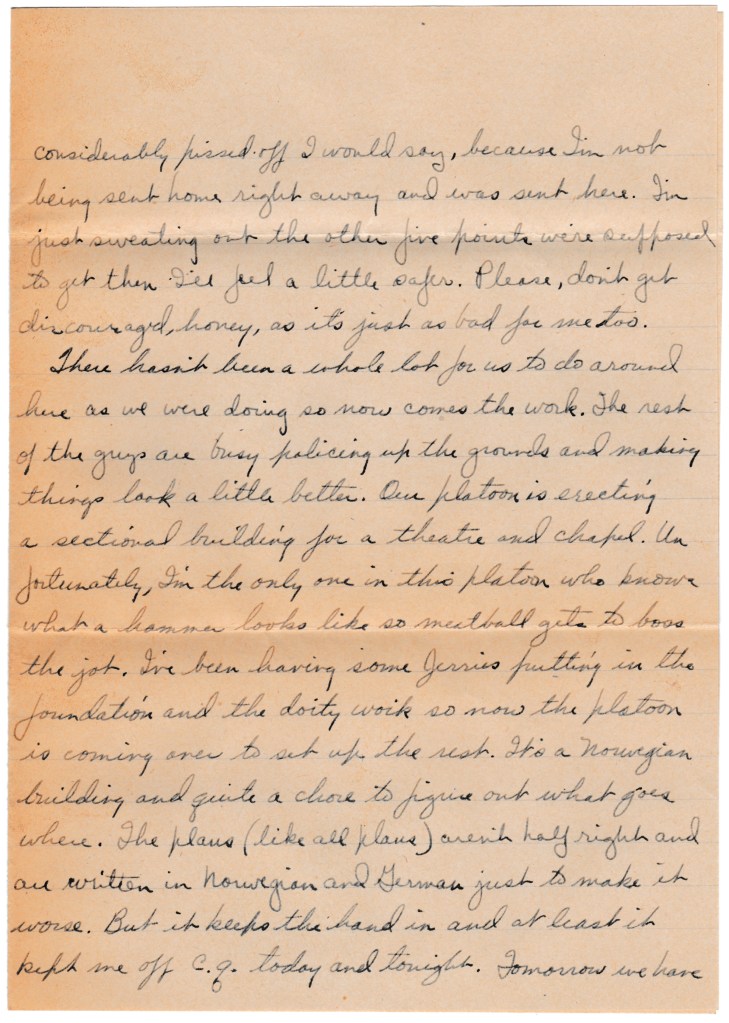 considerably pissed-off I would say, because I'm not
being sent home right away and was sent here. I'm
just sweating out the other five points we're supposed
to get then I'll feel a little safer. Please, don't get
discouraged, honey, as it's just as bad for me too.
There hasn't been a whole lot for us to do around
here as we were doing so now comes the work. The rest
of the guys are busy policing up the grounds and making
things look a little better. Our platoon is erecting
a sectional building for a theatre and chapel. Un
fortunately, I'm the only one in this platoon who knows
what a hammer looks like so meatball gets to boss
the job. I've been having some Jerries putting in the
foundation and the doity woik so now the platoon
is coming over to set up the rest. It's a Norwegian
building and quite a chore to figure out what goes
where. The plans (like all plans) aren't half right and
are written in Norwegian and German just to make it
worse. But it keeps the hand in and at least it
kept me off C.Q. today and tonight. Tomorrow we have